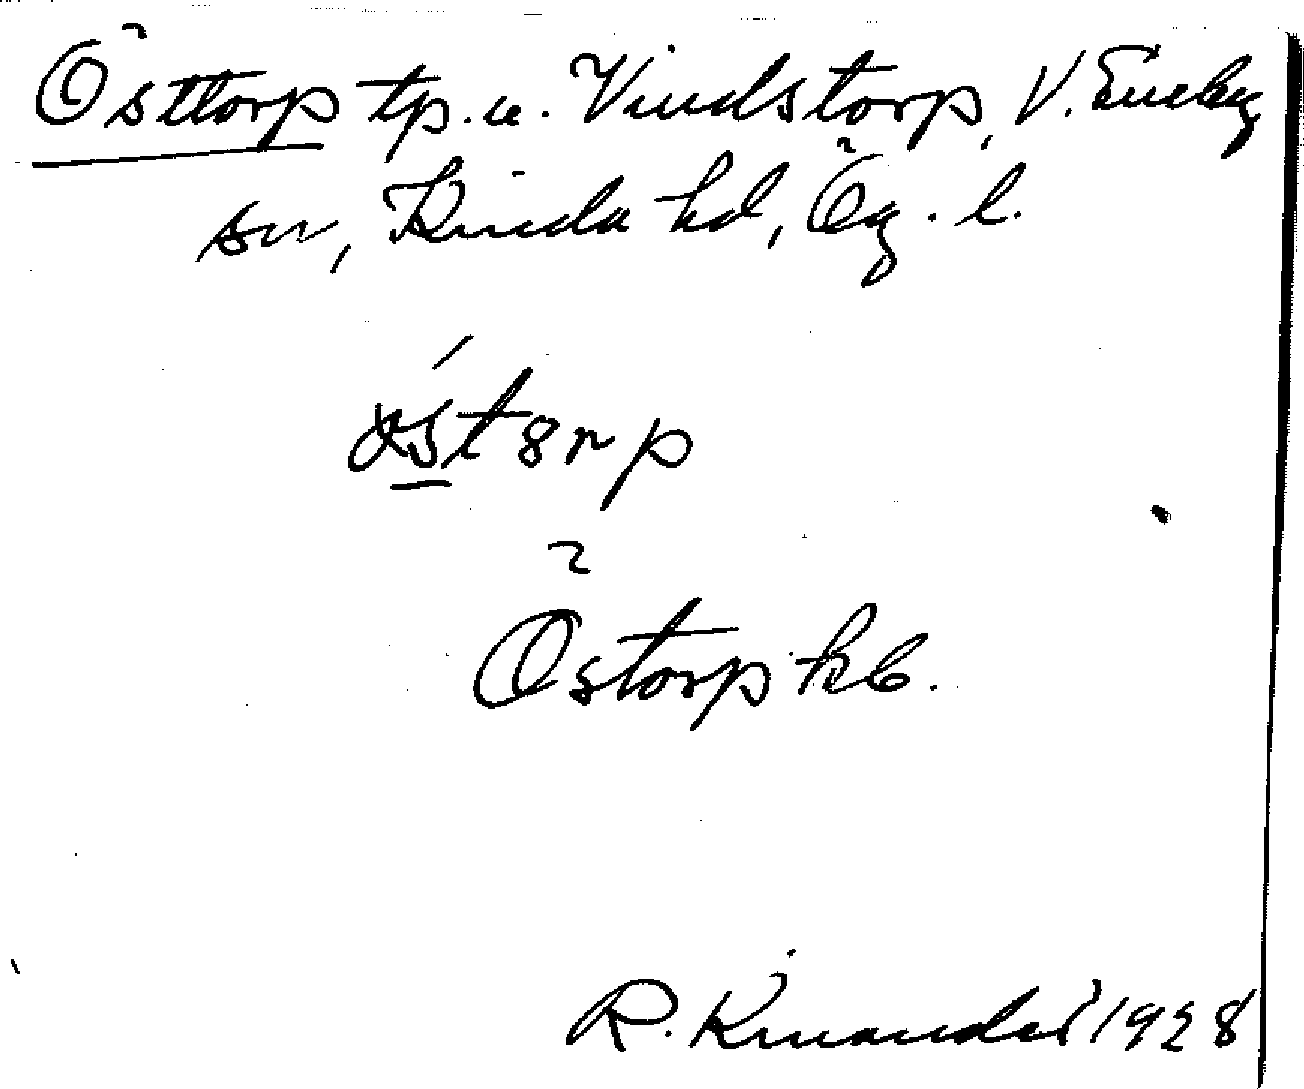 Östtorp tp. u. Vindstorp, V. Eneby
sn, Kinda hd, Ög. l.
Östorp kb.
R. Kinander 1928